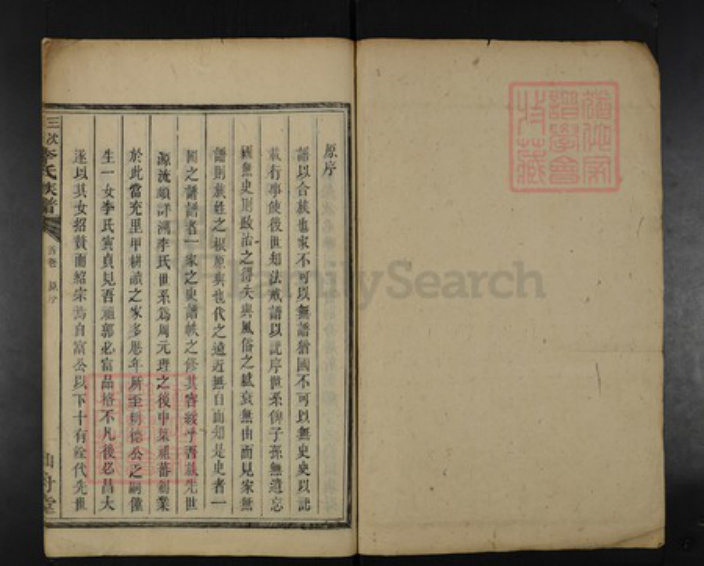 原序
譜以合族也家不可以無譜猶國不可以無史史以記
載行事使後世知法戒譜以記序世系俾子孫無遺忘
國無史則政治之得失與風俗之盛衰無由而見家無
譜則族姓之根原與世代之遠近無自而知是史者一
國之譜譜者一家之史譜帙之修其容緩乎吾族先世
源流頗詳鴻李氏世系為周元理之後中葉祖蕃創業
於此當充里甲耕讀之家多歷年所至則德公之嗣僅
生一女李氏寅貞見吾祖郭必富品格不凡後必昌大
遂以其女招贅而紹宗焉自富公以下十有餘代先世
三次李氏族譜
首卷 原序
仙舟堂
FamilySearch